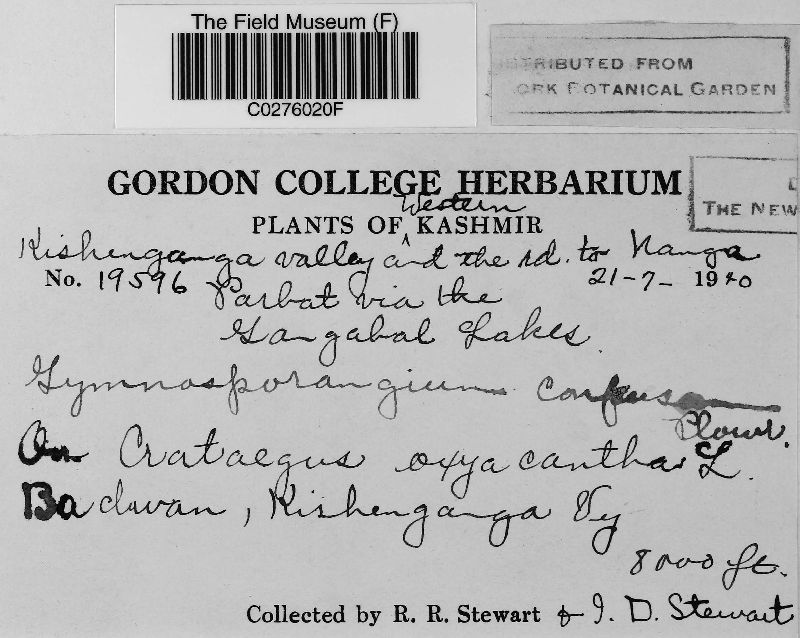 The Field Museum (F)
C0276020F
TRIBUTED FROM
ORK BOTANICAL GARDEN
GORDON COLLEGE HERBARIUM
THE NEW
Western
PLANTS OF ^ KASHMIR
Kishenganga valley and the rd. to Nanga
No. 19596 Parbat via the 21-7- 1940
Gangabal Lakes.
Gymnosporangium confusum
Plowr.
On Crataegus oxyacantha L.
Badwan, Kishenganga Vy
8000 ft.
Collected by R. R. Stewart & I. D. Stewart